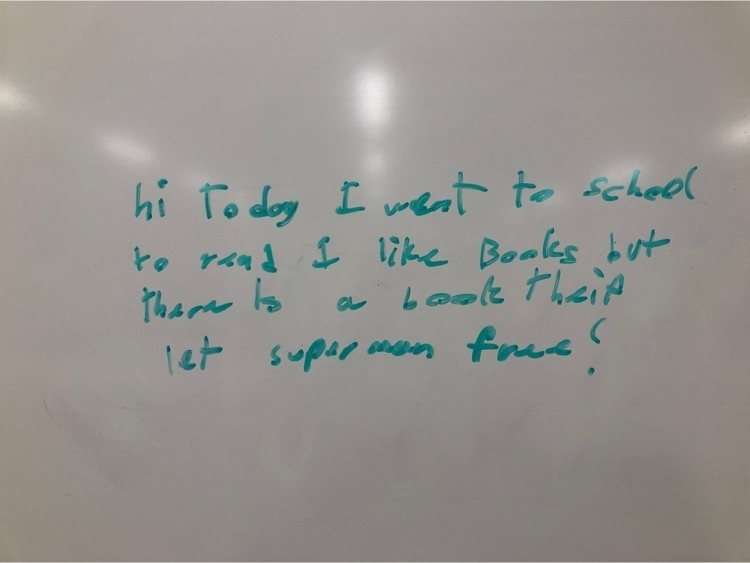 hi Today I went to school
to read I like Books but
there Is a book theif
let superman free!